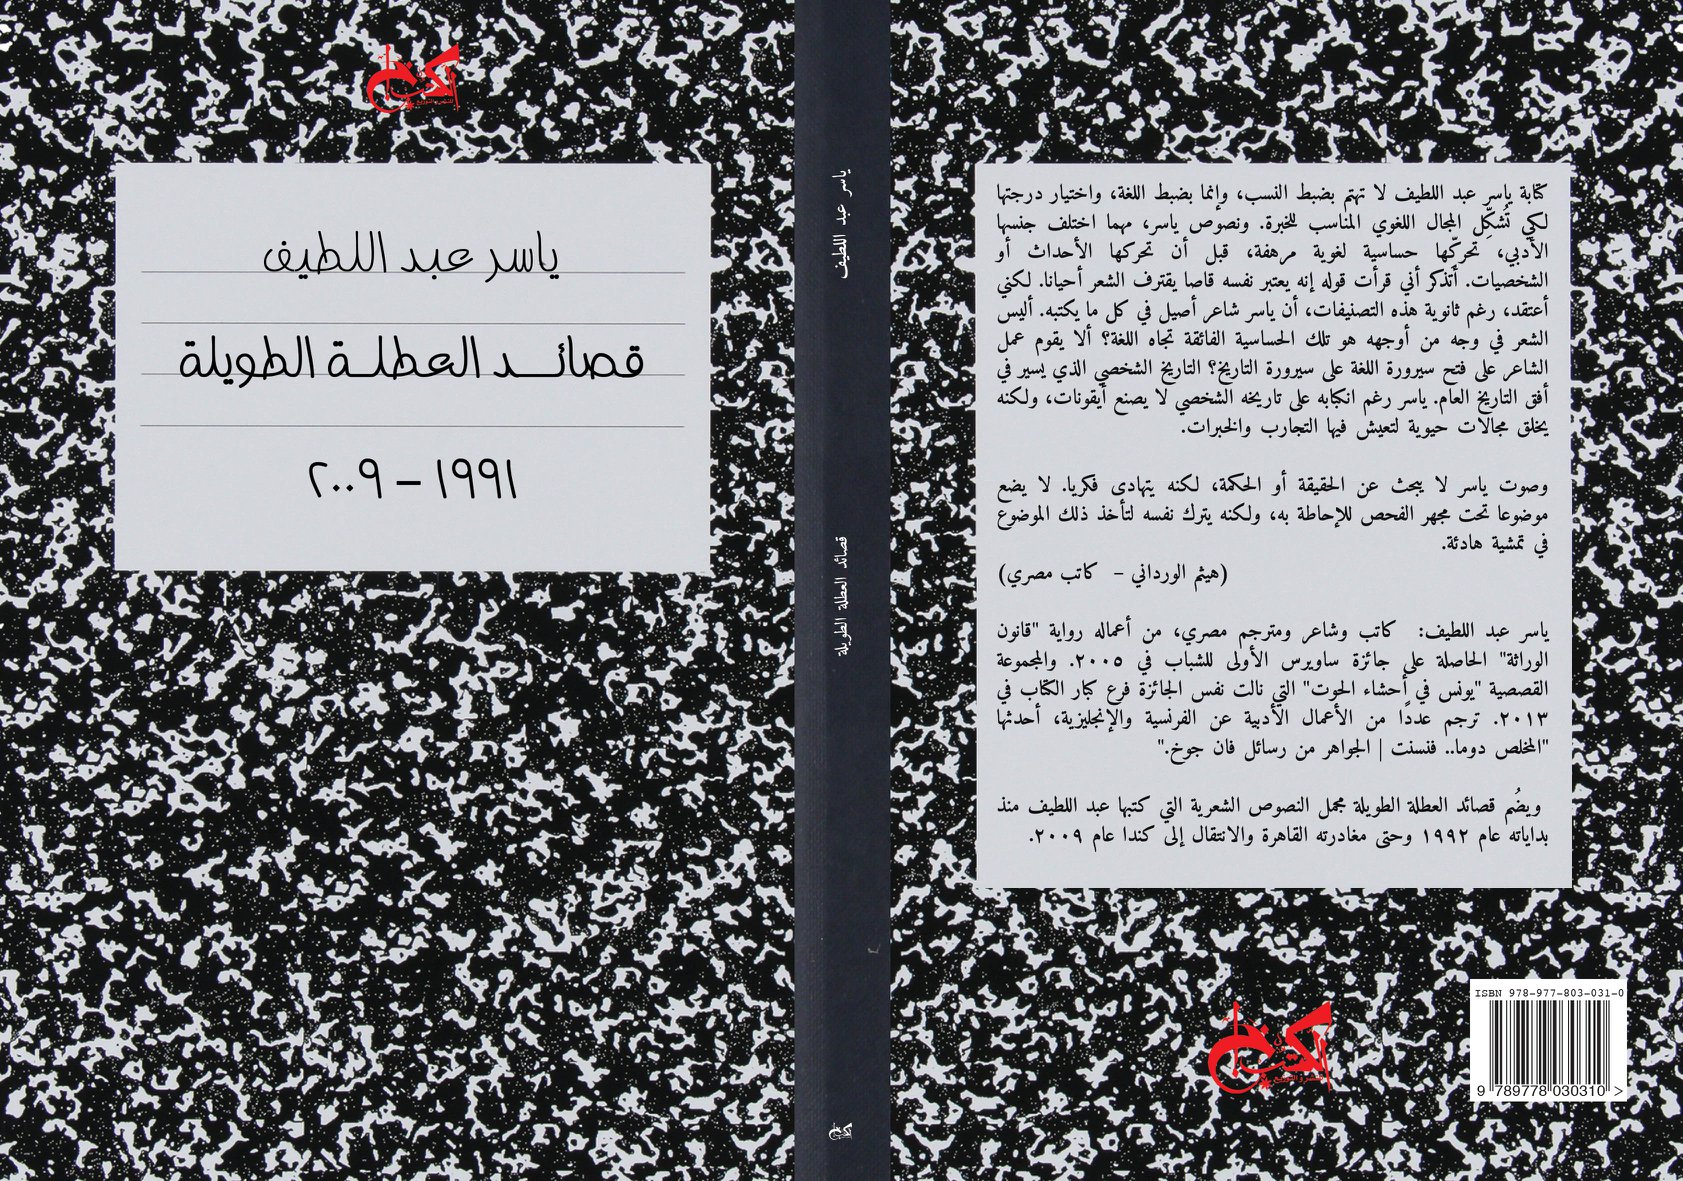 ياسر عبد اللطيف
قصائد العطلة الطويلة
١٩٩١ – ٢٠٠٩
ياسر عبد اللطيف
قصائد العطلة الطويلة
كتابة ياسر عبد اللطيف لا تهتم بضبط النسب، وإنما بضبط اللغة، واختيار درجتها
لكي تُشكِّل المجال اللغوي المناسب للخبرة. ونصوص ياسر، مهما اختلف جنسها
الأدبي، تحركِّها حساسية لغوية مرهفة، قبل أن تحركها الأحداث أو
الشخصيات. أتذكر أني قرأت قوله إنه يعتبر نفسه قاصا يقترف الشعر أحيانا. لكني
أعتقد، رغم ثانوية هذه التصنيفات، أن ياسر شاعر أصيل في كل ما يكتبه. أليس
الشعر في وجه من أوجهه هو تلك الحساسية الفائقة تجاه اللغة؟ ألا يقوم عمل
الشاعر على فتح سيرورة اللغة على سيرورة التاريخ؟ التاريخ الشخصي الذي يسير في
أفق التاريخ العام. ياسر رغم انكبابه على تاريخه الشخصي لا يصنع أيقونات، ولكنه
يخلق مجالات حيوية لتعيش فيها التجارب والخبرات.
وصوت ياسر لا يبحث عن الحقيقة أو الحكمة، لكنه يتهادى فكريا. لا يضع
موضوعا تحت مجهر الفحص للإحاطة به، ولكنه يترك نفسه لتأخذ ذلك الموضوع
في تمشية هادئة.
(هيثم الورداني – كاتب مصري)
ياسر عبد اللطيف: كاتب وشاعر ومترجم مصري، من أعماله رواية "قانون
الوراثة" الحاصلة على جائزة ساويرس الأولى للشباب في ٢٠٠٥. والمجموعة
القصصية "يونس في أحشاء الحوت" التي نالت نفس الجائزة فرع كبار الكتاب في
٢٠١٣. ترجم عددًا من الأعمال الأدبية عن الفرنسية والإنجليزية، أحدثها
"المخلص دوما.. فنسنت | الجواهر من رسائل فان جوخ."
ويضُم قصائد العطلة الطويلة مجمل النصوص الشعرية التي كتبها عبد اللطيف منذ
بداياته عام ١٩٩٢ وحتى مغادرته القاهرة والانتقال إلى كندا عام ٢٠٠٩.
ISBN 978-977-803-031-0
9 789778 030310 >